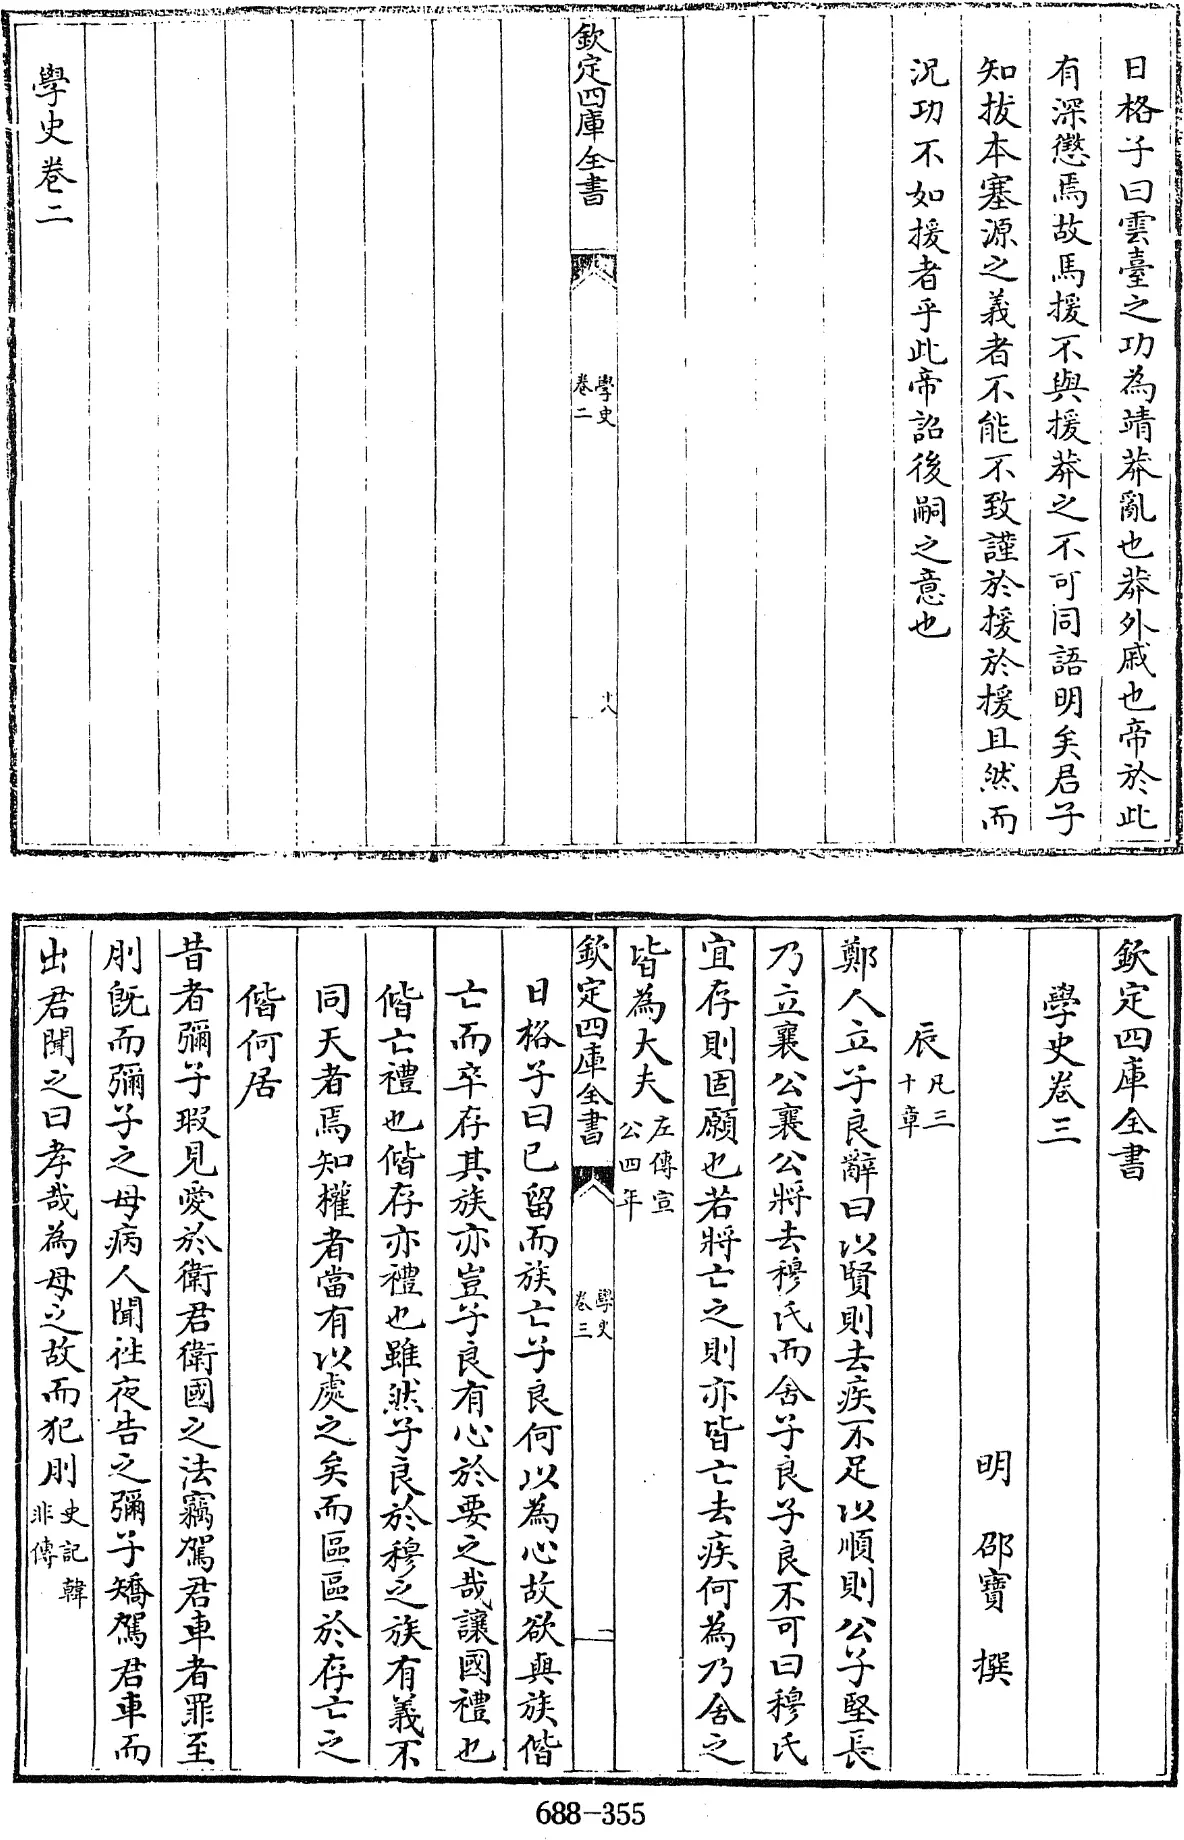 日格子曰雲臺之功為靖莽亂也莽外戚也帝於此
有深懲焉故馬援不與援莽之不可同語明矣君子
知拔本塞源之義者不能不致謹於援於援且然而
況功不如援者乎此帝詔後嗣之意也
欽定四庫全書
學史
卷二
十八
學史卷二
欽定四庫全書
學史卷三
明 邵寶 撰
辰凡三
十章
鄭人立子良辭曰以賢則去疾不足以順則公子堅長
乃立襄公襄公將去穆氏而舍子良子良不可曰穆氏
宜存則固願也若將亡之則亦皆亡去疾何為乃舍之
皆為大夫左傳宣
公四年
欽定四庫全書
學史
卷三
一
日格子曰已留而族亡子良何以為心故欲與族偕
亡而卒存其族亦豈子良有心於要之哉讓國禮也
偕亡禮也偕存亦禮也雖然子良於穆之族有義不
同天者焉知權者當有以處之矣而區區於存亡之
偕何居
昔者彌子瑕見愛於衛君衛國之法竊駕君車者罪至
刖既而彌子之母病人聞往夜告之彌子矯駕君車而
出君聞之曰孝哉為母之故而犯刖史記韓
非傳
688-355